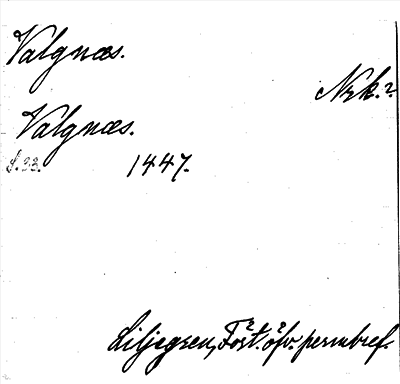 Valgnæs.
Nrk.?
Valgnæs.
S. 33. 1447.
Liljegren, Fört. öfv. permbref.